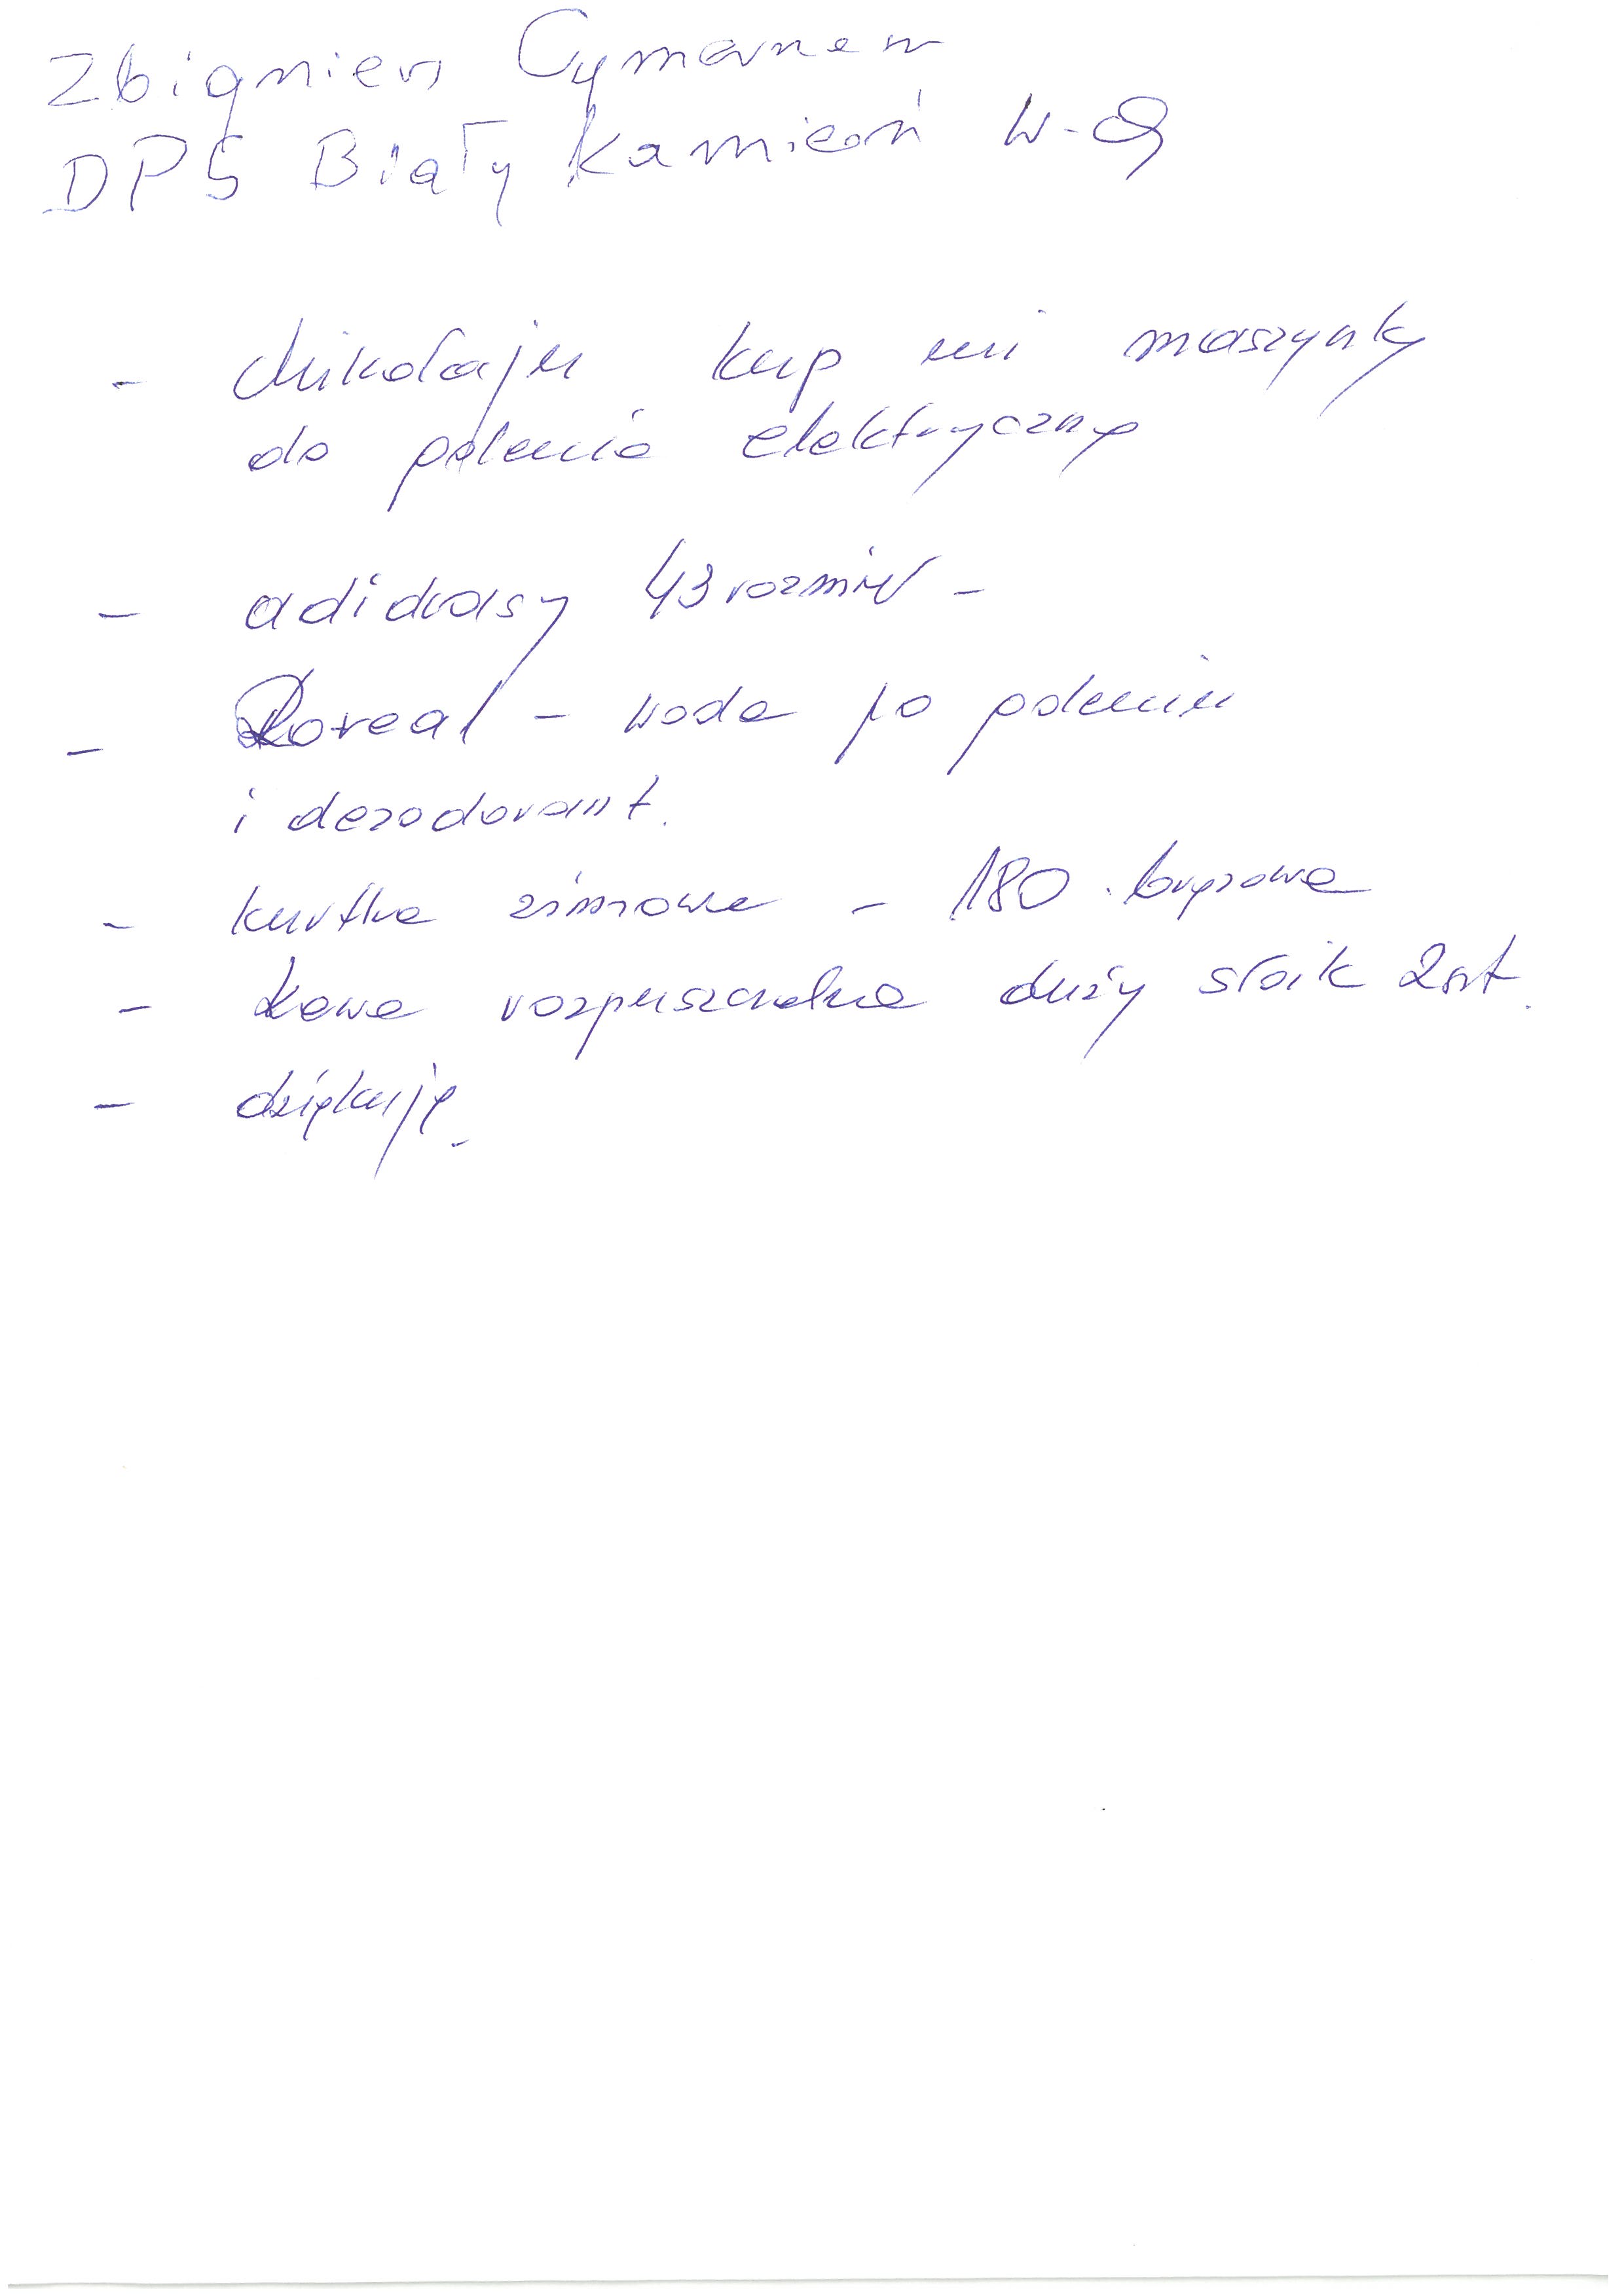 Zbigniew Cymerman
DPS Biały Kamień W-ch
- Mikołaju kup mi maszynkę
do golenia elektryczną
- adidasy 43 rozmir -
- Loreal - woda po goleniu
i dezodorant.
- kurtka zimowa - 180 . brązowa
- kawa rozpuszczalna duży słoik 2szt.
- dziękuję.